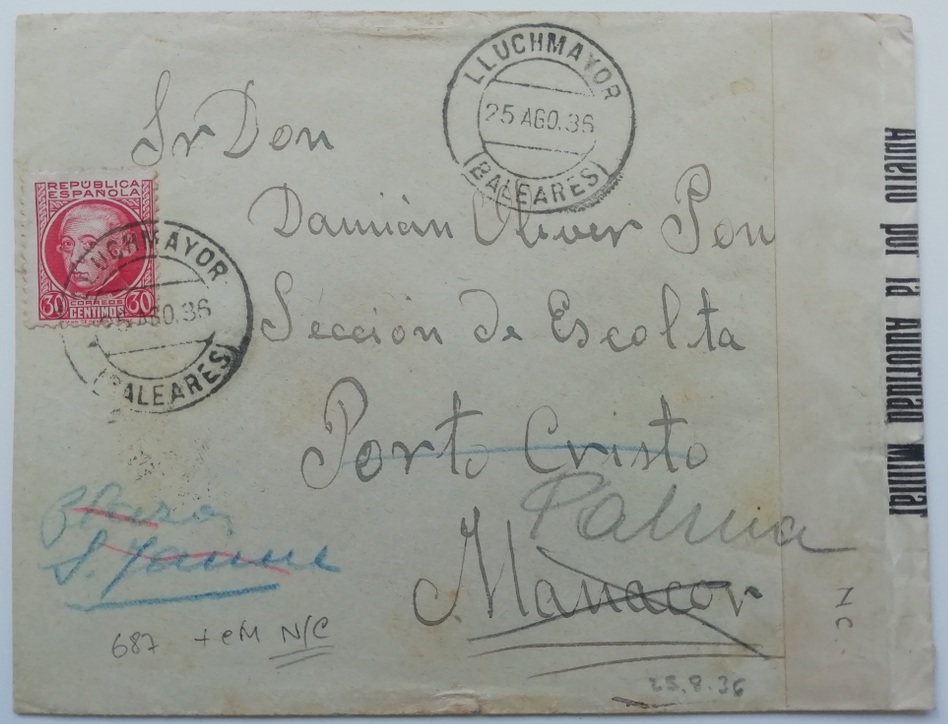 LLUCHMAYOR
25 AGO.36
(BALEARES)
Sr Don
Damián Oliver Pou
Sección de Escolta
Porto Cristo
Palma
Manacor
REPÚBLICA
ESPAÑOLA
30 CORREOS 30
CENTIMOS
LLUCHMAYOR
25 AGO.36
(BALEARES)
S. Jaume
687 + CM N/C
25.8.36
Abierto por la Autoridad Militar
N C.